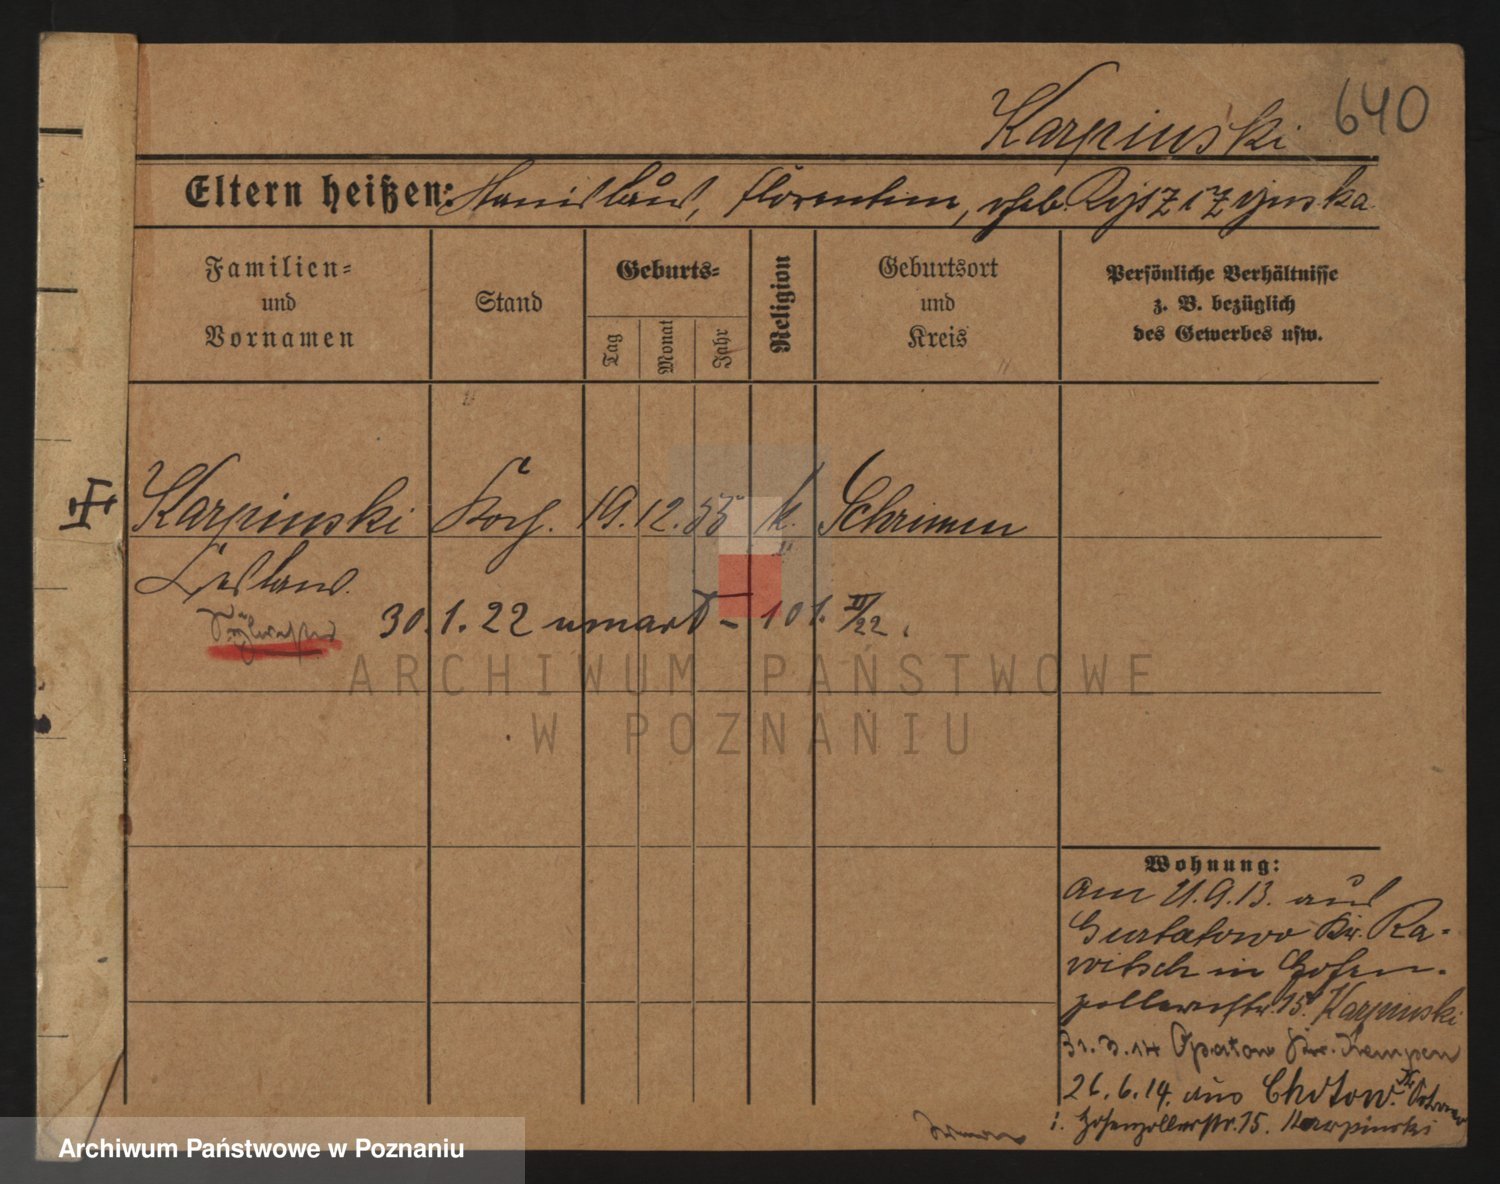 640
Karpinski
Eltern heißen: Stanislaus, Florentine, geb. Ryszczynska
Familien=
und
Vornamen
Stand
Geburts=
Tag
Monat
Jahr
Religion
Geburtsort
und
Kreis
Persönliche Verhältnisse
z. B. bezüglich
des Gewerbes usw.
Karpinski
19. 12. 55
k.
Schrimm
Ceslaus.
30. 1. 22 umarł – 101. II/22.
ARCHIWUM PAŃSTWOWE
W POZNANIU
Wohnung:
am 21.9.13. aus
Kr. Ra-
witsch in Hohen-
zollernstr. 15. Karpinski
31.3.14 Opatow Kr. Kempen
26.6.14. aus Chotow. Kr.
i. Hohenzollerstr. 15. Karpinski
Archiwum Państwowe w Poznaniu